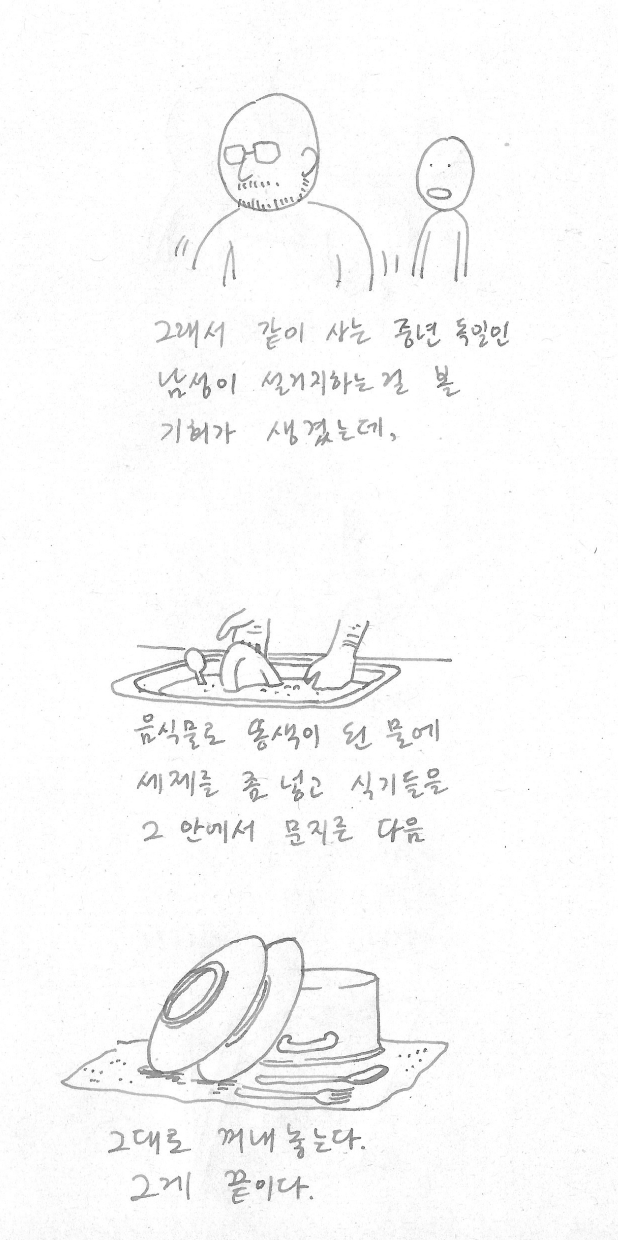 그래서 같이 사는 중년 독일인
남성이 설거지하는 걸 볼
기회가 생겼는데,
음식물로 똥색이 된 물에
세제를 좀 넣고 식기들을
그 안에서 문지른 다음
그대로 꺼내 놓는다.
그게 끝이다.